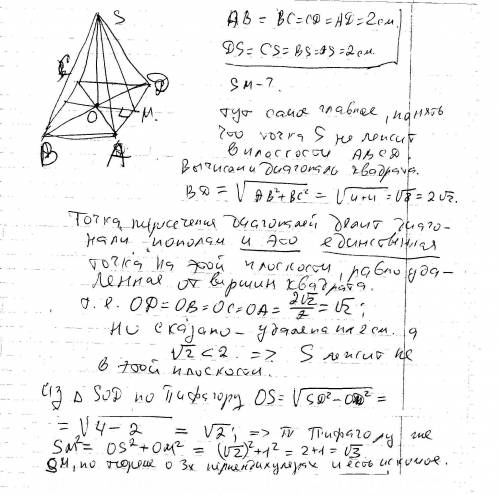 S
C
D
O
M.
B
A
AB = BC = CD = AD = 2см.
DS = CS = BS = AS = 2см.
SM - ?
тут самое главное, понять
что точка S не лежит
в плоскости ABCD.
Вычислим диагональ квадрата.
BD = √AB²+BC² = √4+4 = √8 = 2√2.
Точка пересечения диагоналей делит диаго-
нали пополам и это единственная
точка на этой плоскости, равно уда-
ленная от вершин квадрата.
т.е. OD = OB = OC = OA = 2√2/2 = √2;
Но сказано - удалена на 2 см. а
√2 < 2 => S лежит не
в этой плоскости.
Из Δ SOD по Пифагору OS = √SD²-OD² =
= √4-2 = √2; => по Пифагору же
SM² = OS² + OM² = (√2)² + 1² = 2+1 = √3
SM, по теореме о 3х перпендикулярах и есть искомое.